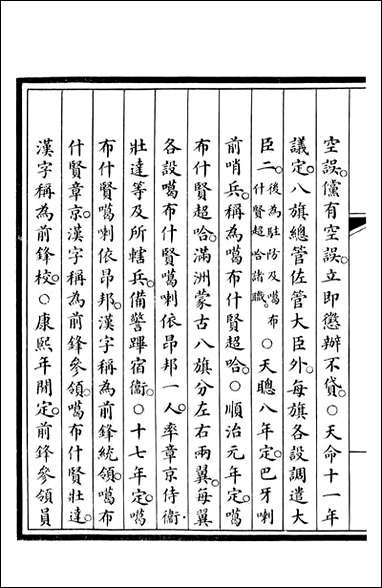 空誤。儻有空誤。立即懲辦不貸。○天命十一年
議定。八旗總管佐管大臣外。每旗各設調遣大
臣二。後為駐防及噶布什賢超哈諸職。○天聰八年定。巴牙喇
前哨兵。稱為噶布什賢超哈。○順治元年定。噶
布什賢超哈。滿洲蒙古八旗分左右兩翼。每翼
各設噶布什賢噶喇依昂邦一人。率章京侍衞。
壯達等及所轄兵。備警蹕宿衞。○十七年定。噶
布什賢噶喇依昂邦。漢字稱為前鋒統領。噶布
什賢章京。漢字稱為前鋒參領。噶布什賢壯達。
漢字稱為前鋒校。○康熙年閒定。前鋒參領員